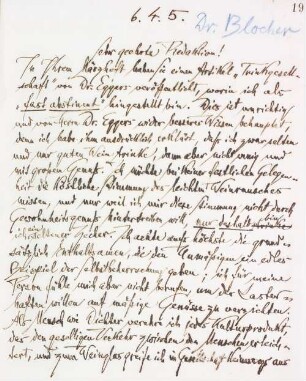 19
6. 4. 5.
Dr. Blocher
Sehr geehrte Redaktion!
In Ihrem Märzheft haben Sie einen Artikel „Trinkgesell-
schaft" von Dr. Eggers veröffentlicht, worin ich als
„fast abstinent" hingestellt bin. Dies ist unrichtig
und von Herrn Dr. Eggers wider besseres Wissen behauptet,
denn ich habe ihm ausdrücklich erklärt, daß ich zwar selten
und nur guten Wein trinke, dann aber nicht wenig und
mit großem Genuß. Ich möchte bei keiner festlichen Gelegen-
heit die köstliche Stimmung des leichten Weinrausches
missen, und nur weil ich mir diese Stimmung nicht durch
Gewohnheitsgenuß hintertreiben will, nur deshalb bin
ich ein seltener Zecher. Ich achte aufs höchste die grund-
sätzlich Enthaltsamen, die den Unmäßigen ein edles
Beispiel der Selbstbeherrschung geben; ich für meine
Person fühle mich aber nicht berufen, um der Laster-
haften willen auf mäßige Genüsse zu verzichten.
Als Mensch wie Dichter verehre ich jedes Kulturprodukt,
das den geselligen Verkehr zwischen den Menschen erleich-
tert; und zum Weinglas greife ich in Gesellschaft keineswegs aus